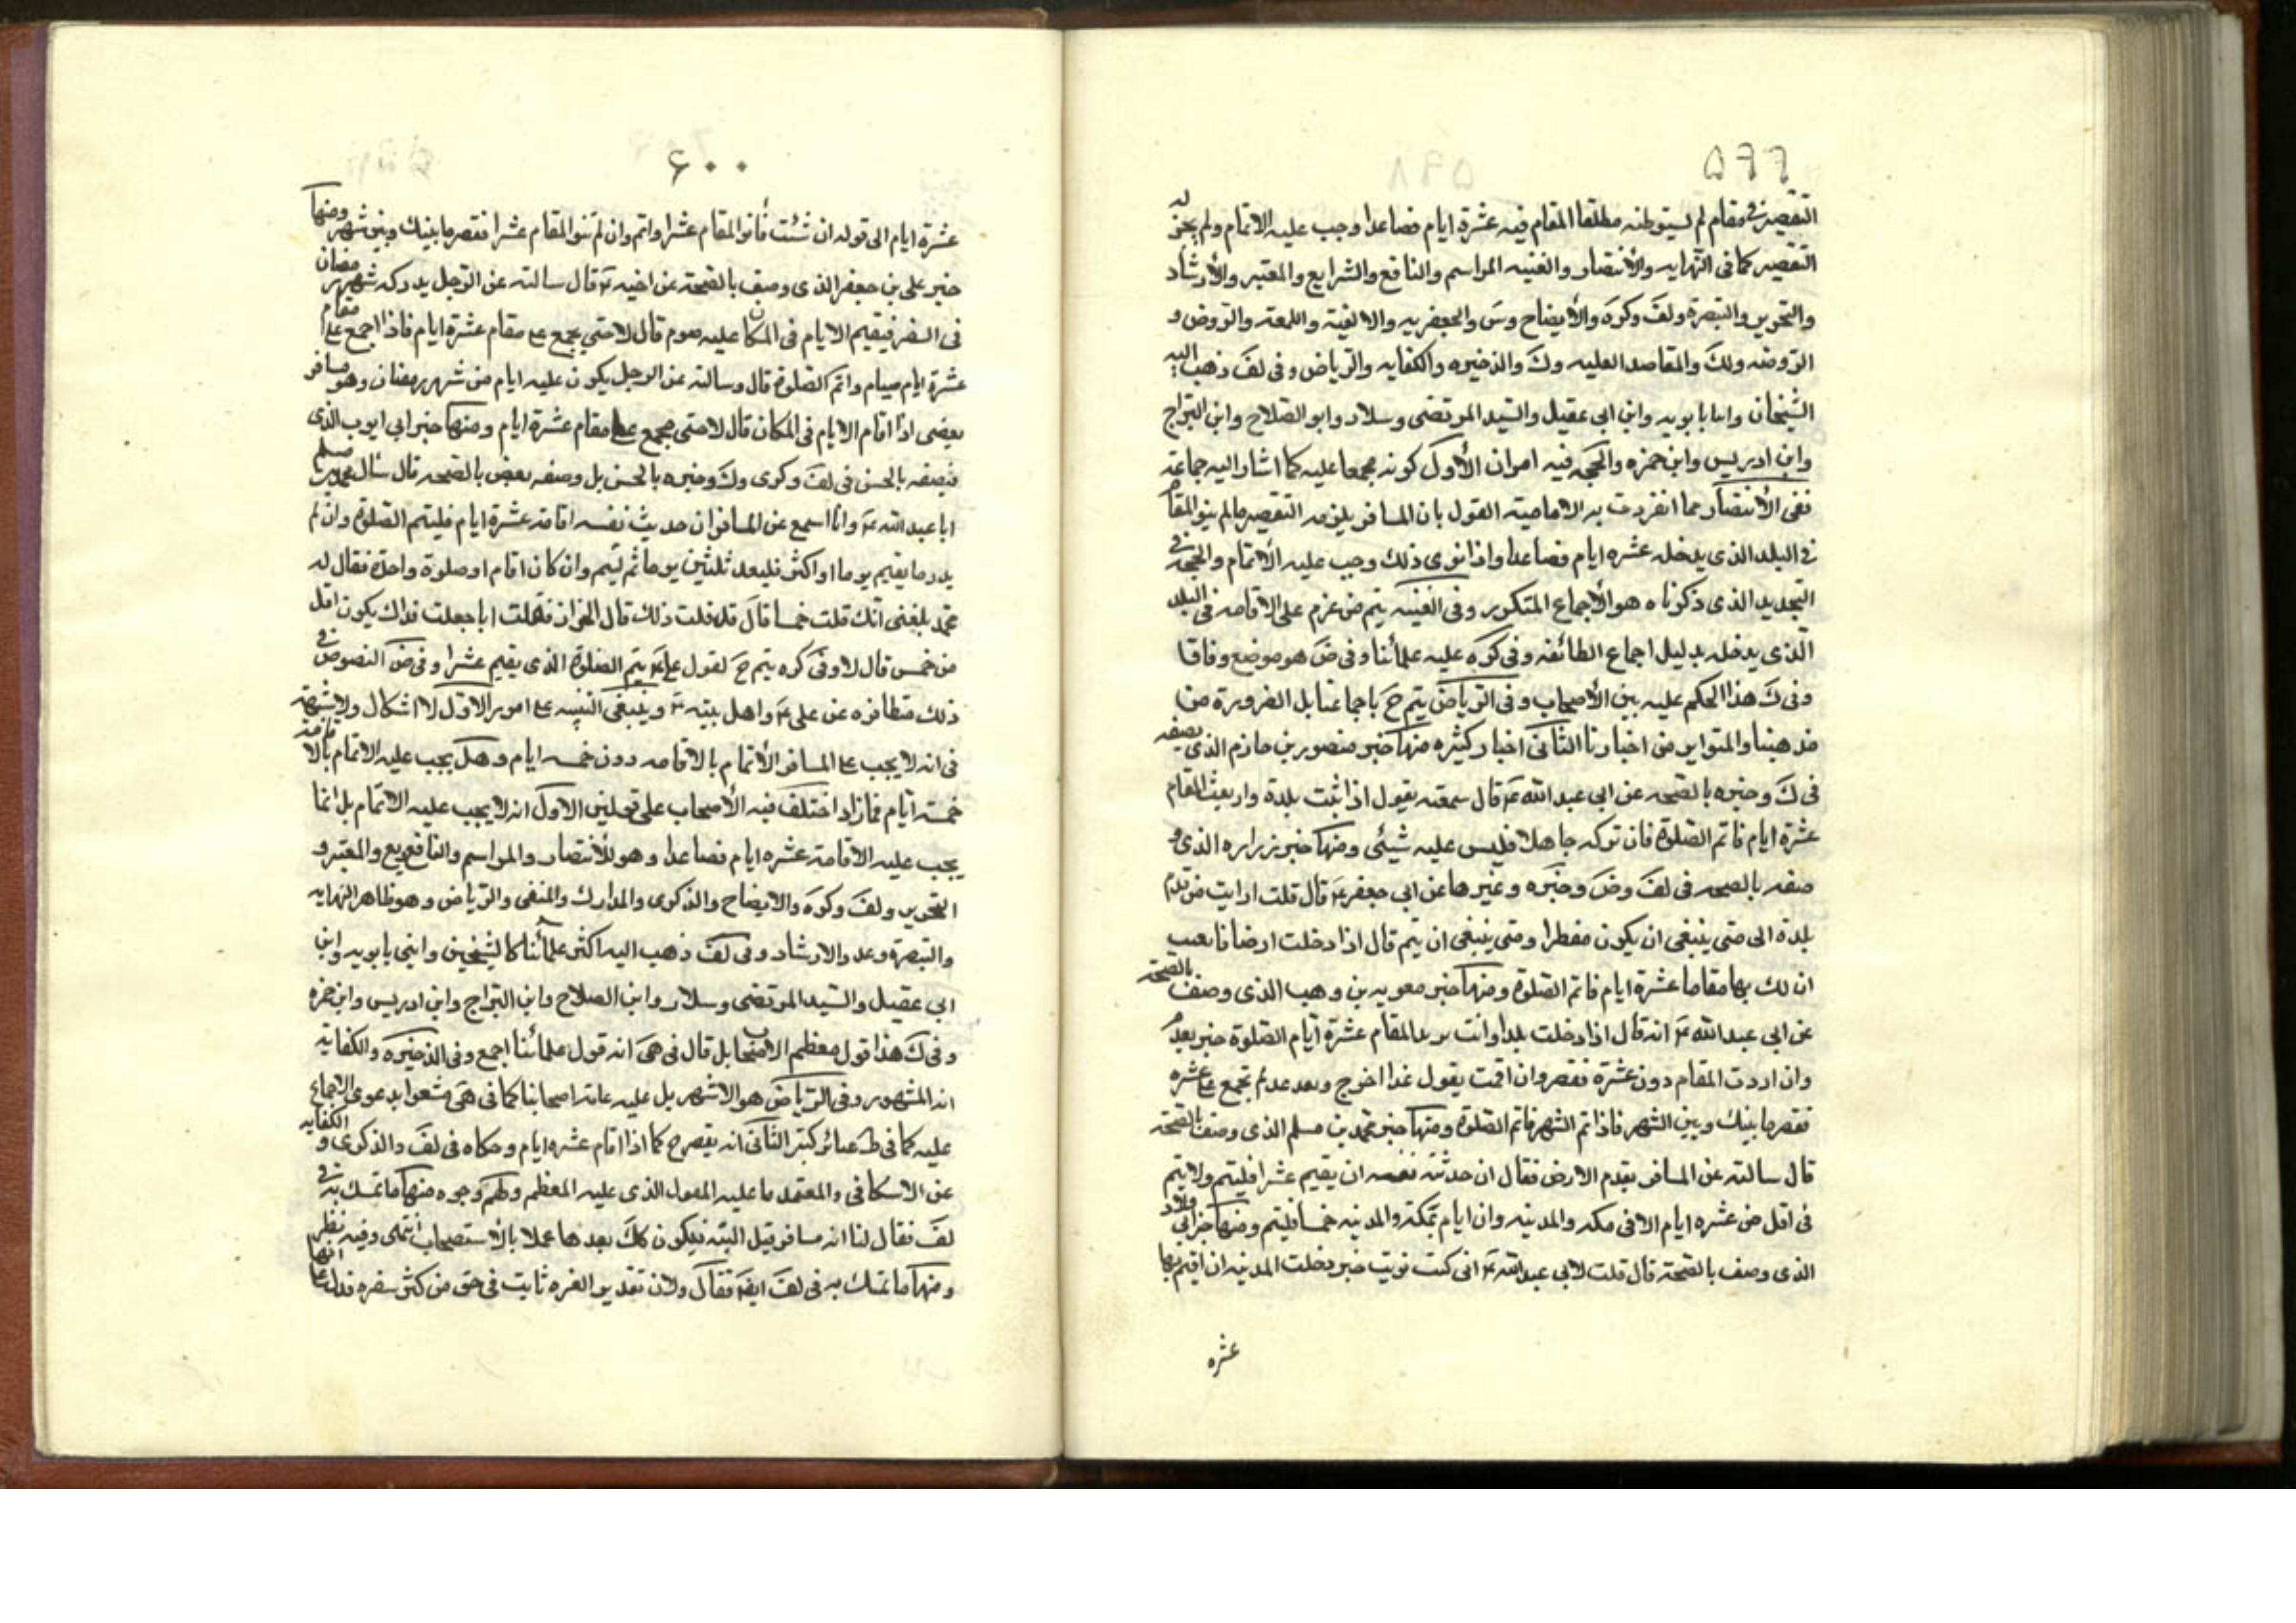 ٥٩٩
التقصير في مقام لم يستوطنه مطلقا المقام فيه عشرة ايام فصاعدا وجب عليه الاتمام ولم يجز له
التقصير كما في النهايه والأنتصار والغنيه المراسم والنافع والشرايع والمعتبر والأرشاد
والتحرير والتبصرة ولف وكره والأيضاح وس والجعفريه والالفية واللمعة والروض و
الروضه ولك والمقاصد العليه وك والذخيره والكفايه والرياض وفي لف ذهب اليه
الشيخان وابنا بابويه وابن ابي عقيل والسيد المرتضى وسلار وابو الصلاح وابن البراج
وابن ادريس وابن حمزه والحجه فيه امران الأول كونه مجمعا عليه كما اشار اليه جماعة
ففي الأنتصار مما انفردت به الامامية القول بان المسافر يلزمه التقصير ما لم ينو المقام
في البلد الذي يدخله عشره ايام فصاعدا واذا نوى ذلك وجب عليه الأتمام والحجه في
التحديد الذي ذكرناه هو الأجماع المتكرر وفي الغنيه يتم من عزم على الاقامه في البلد
الذي يدخله بدليل اجماع الطائفه وفي كره عليه علمائنا وفي ض هو موضع وفاقا
وفي ك هذا الحكم عليه بين الأصحاب وفي الرياض يتم ح باجماعنا بل الضرورة من
مذهبنا والمتواير من اخبارنا الثاني اخبار كثيره منها خبر منصور بن حازم الذي يصفه
في ك وخيره بالصحه عن ابي عبد الله ع قال سمعته يقول اذا اتيت بلدة وازمعت المقام
عشرة ايام فاتم الصلوة فان تركه جاهلا فليس عليه شيئي ومنها خبر زراره الذي و
صفه بالصحه في لف وض وخيره وغيرها عن ابي جعفر ع قال قلت ارايت من قدم
بلدة الى متى ينبغي ان يكون مفطرا ومتى ينبغي ان يتم قال اذا دخلت ارضا فايقنت
ان لك بها مقاما عشرة ايام فاتم الصلوة ومنها خبر معويه بن وهب الذي وصف بالصحة
عن ابي عبد الله ع انه قال اذا دخلت بلدا وانت تريد المقام عشرة ايام الصلوة حين تقدم
وان اردت المقام دون عشرة فقصر وان اقمت يقول غدا اخرج وبعد غد لم تجمع على عشره
فقصر ما بينك وبين الشهر فاذا تم الشهر فاتم الصلوة ومنها خبر محمد بن مسلم الذي وصف بالصحة
قال سالته عن المسافر يقدم الارض فقال ان حدثته نفسه ان يقيم عشرا فليتم ولا يتم
في اقل من عشره ايام الا في مكه والمدينه وان ايام بمكة والمدينه خمسا فليتم ومنها خبر ابي ولاد
الذي وصف بالصحة قال قلت لابي عبد الله ع اني كنت نويت حين دخلت المدينه ان اقيم بها
عشره
٦٠٠
عشرة ايام الى قوله ان شئت فانو المقام عشرا واتم وان لم تنو المقام عشرا فقصر ما بينك وبين شهر ومنها
خبر علي بن جعفر الذي وصف بالصحة عن اخيه ع قال سالته عن الرجل يدركه شهر رمضان
في السفر فيقيم الايام في المكان عليه صوم قال لا حتى يجمع على مقام عشرة ايام فاذا اجمع على مقام
عشرة ايام صام واتم الصلوة قال وسالته عن الرجل يكون عليه ايام من شهر رمضان وهو مسافر
يقضى اذا اقام الايام في المكان قال لا حتى يجمع على مقام عشرة ايام ومنها خبر ابي ايوب الذي
فيصفه بالحسن في لف وكرى وك وخيره بالحسن بل وصفه بعض بالصحه قال سال محمد بن مسلم
ابا عبد الله ع وانا اسمع عن المسافر ان حديث نفسه اقامة عشرة ايام فليتم الصلوة وان لم
يدر ما يقيم يوما او اكثر فليعد ثلثين يوما ثم ليتم وان كان اقام او صلوة واحدة فقال له
محمد بلغني انك قلت خمسا قال قد قلت ذلك قال الخزاز فقلت انا جعلت فداك يكون اقل
من خمس قال لا وفي كره يتم ح لقول علي ع يتم الصلوة الذي يقيم عشرا وفي ض النصوص في
ذلك متظافره عن علي ع واهل بيته ع وينبغي التنبيه على امور الاول لا اشكال ولا شبهة
في انه لا يجب على المسافر الأتمام بالاقامه دون خمسه ايام وهل يجب عليه الاتمام بالاقامة
خمسة ايام فما زاد اختلف فيه الأصحاب على قولين الاول انه لا يجب عليه الاتمام بل انما
يجب عليه الاقامة عشره ايام فصاعدا وهو للأنتصار والمراسم والنافع يع والمعتبر و
التحرير ولف وكره والايضاح والذكرى والمدارك والمنتقى والرياض وهو ظاهر النهايه
والتبصرة وعد والارشاد وفي لف ذهب اليه اكثر علمائنا كالشيخين وابني بابويه وابن
ابي عقيل والسيد المرتضى وسلار وابن الصلاح وابن البراج وابن ادريس وابن حمزه
وفي ك هذا قول معظم الاصحاب بل قال في هى انه قول علمائنا اجمع وفي الذخيره والكفايه
انه المشهور وفي الرياض هو الاشهر بل عليه عامة اصحابنا كما في هى مشعرا بدعوى الاجماع
عليه كما في ظ عبائر كثير الثاني انه يقصر ح كما اذا اقام عشره ايام وحكاه في لف والذكرى و الكفايه
عن الاسكافي والمعتمد ما عليه المعول الذي عليه المعظم ولهم وجوه منها ما تمسك به في
لف فقال لنا انه مسافر قبل البته فيكون كك بعدها عملا بالاستصحاب انتهى وفيه نظر
ومنها ما تمسك به في لف ايض فقال ولان تقدير العشره ثابت في حق من كثر سفره فدل على انها